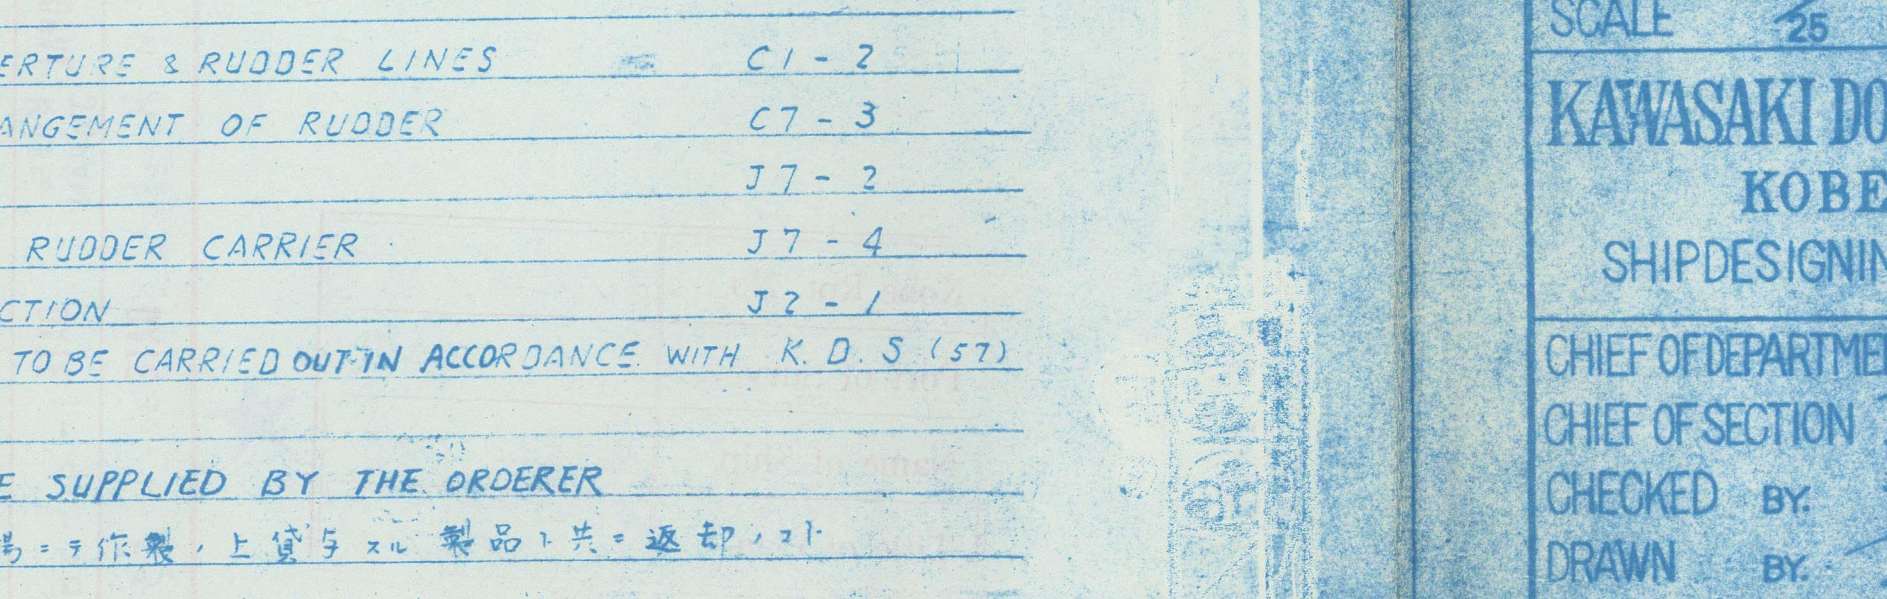 ERTURE & RUDDER LINES C1 - 2
ANGEMENT OF RUDDER C7 - 3
J7 - 2
RUDDER CARRIER J7 - 4
CTION J2 - 1
TO BE CARRIED OUT IN ACCORDANCE WITH K. D. S (57)
E SUPPLIED BY THE ORDERER
場ニテ作製ノ上貸与スル 製品ト共ニ返却ノコト
SCALE 1/25
KAWASAKI DO
KOBE
SHIPDESIGNIN
CHIEF OF DEPARTME
CHIEF OF SECTION
CHECKED BY.
DRAWN BY.